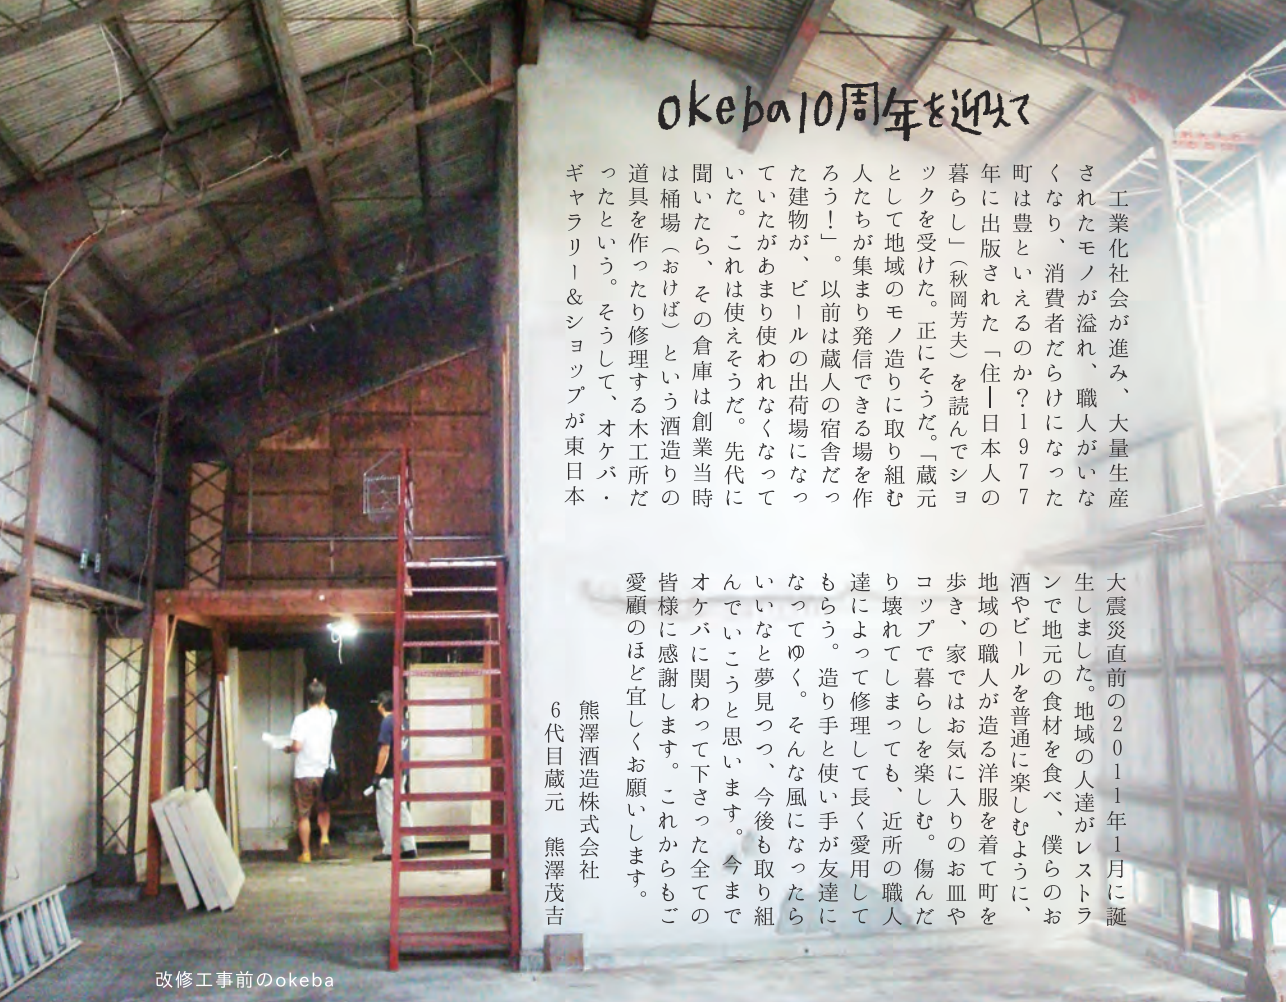 okeba10周年を迎えて
　工業化社会が進み、大量生産
されたモノが溢れ、職人がいな
くなり、消費者だらけになった
町は豊といえるのか？1977
年に出版された「住―日本人の
暮らし」（秋岡芳夫）を読んでショ
ックを受けた。正にそうだ。「蔵元
として地域のモノ造りに取り組む
人たちが集まり発信できる場を作
ろう！」。以前は蔵人の宿舎だっ
た建物が、ビールの出荷場になっ
ていたがあまり使われなくなって
いた。これは使えそうだ。先代に
聞いたら、その倉庫は創業当時
は桶場（おけば）という酒造りの
道具を作ったり修理する木工所だ
ったという。そうして、オケバ・
ギャラリー＆ショップが東日本
大震災直前の2011年1月に誕
生しました。地域の人達がレストラ
ンで地元の食材を食べ、僕らのお
酒やビールを普通に楽しむように、
地域の職人が造る洋服を着て町を
歩き、家ではお気に入りのお皿や
コップで暮らしを楽しむ。傷んだ
り壊れてしまっても、近所の職人
達によって修理して長く愛用して
もらう。造り手と使い手が友達に
なってゆく。そんな風になったら
いいなと夢見つつ、今後も取り組
んでいこうと思います。今まで
オケバに関わって下さった全ての
皆様に感謝します。これからもご
愛顧のほど宜しくお願いします。
熊澤酒造株式会社
6代目蔵元　熊澤茂吉
改修工事前のokeba